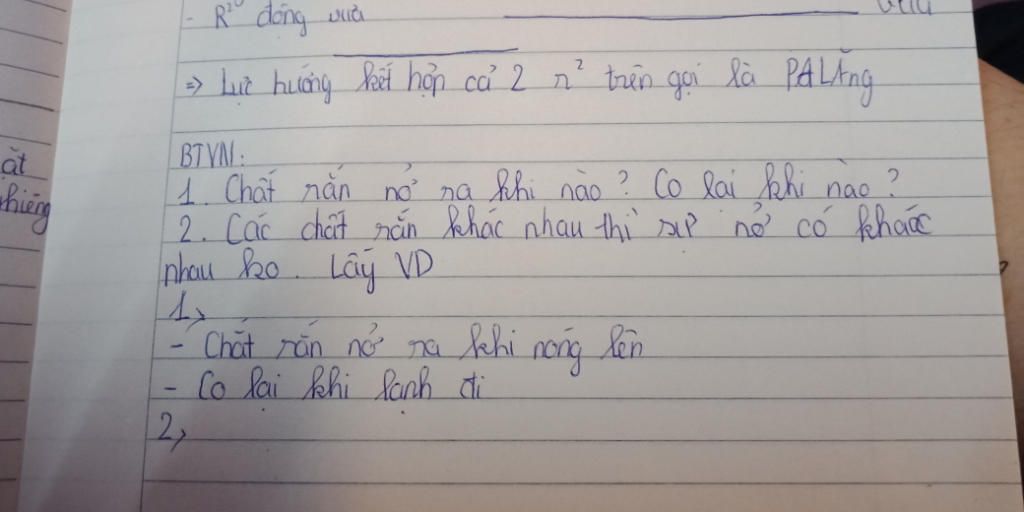 - R²⁰ đống vừa
=> Lực hướng kết hợp cả 2 n² trên gọi là PALĂng
BTVN:
1. Chất rắn nở ra khi nào? Co lại khi nào?
2. Các chất rắn khác nhau thì sự nở có khác
nhau ko. Lấy VD
1,
- Chất rắn nở ra khi nóng lên
- Co lại khi lạnh đi
2,
ặt